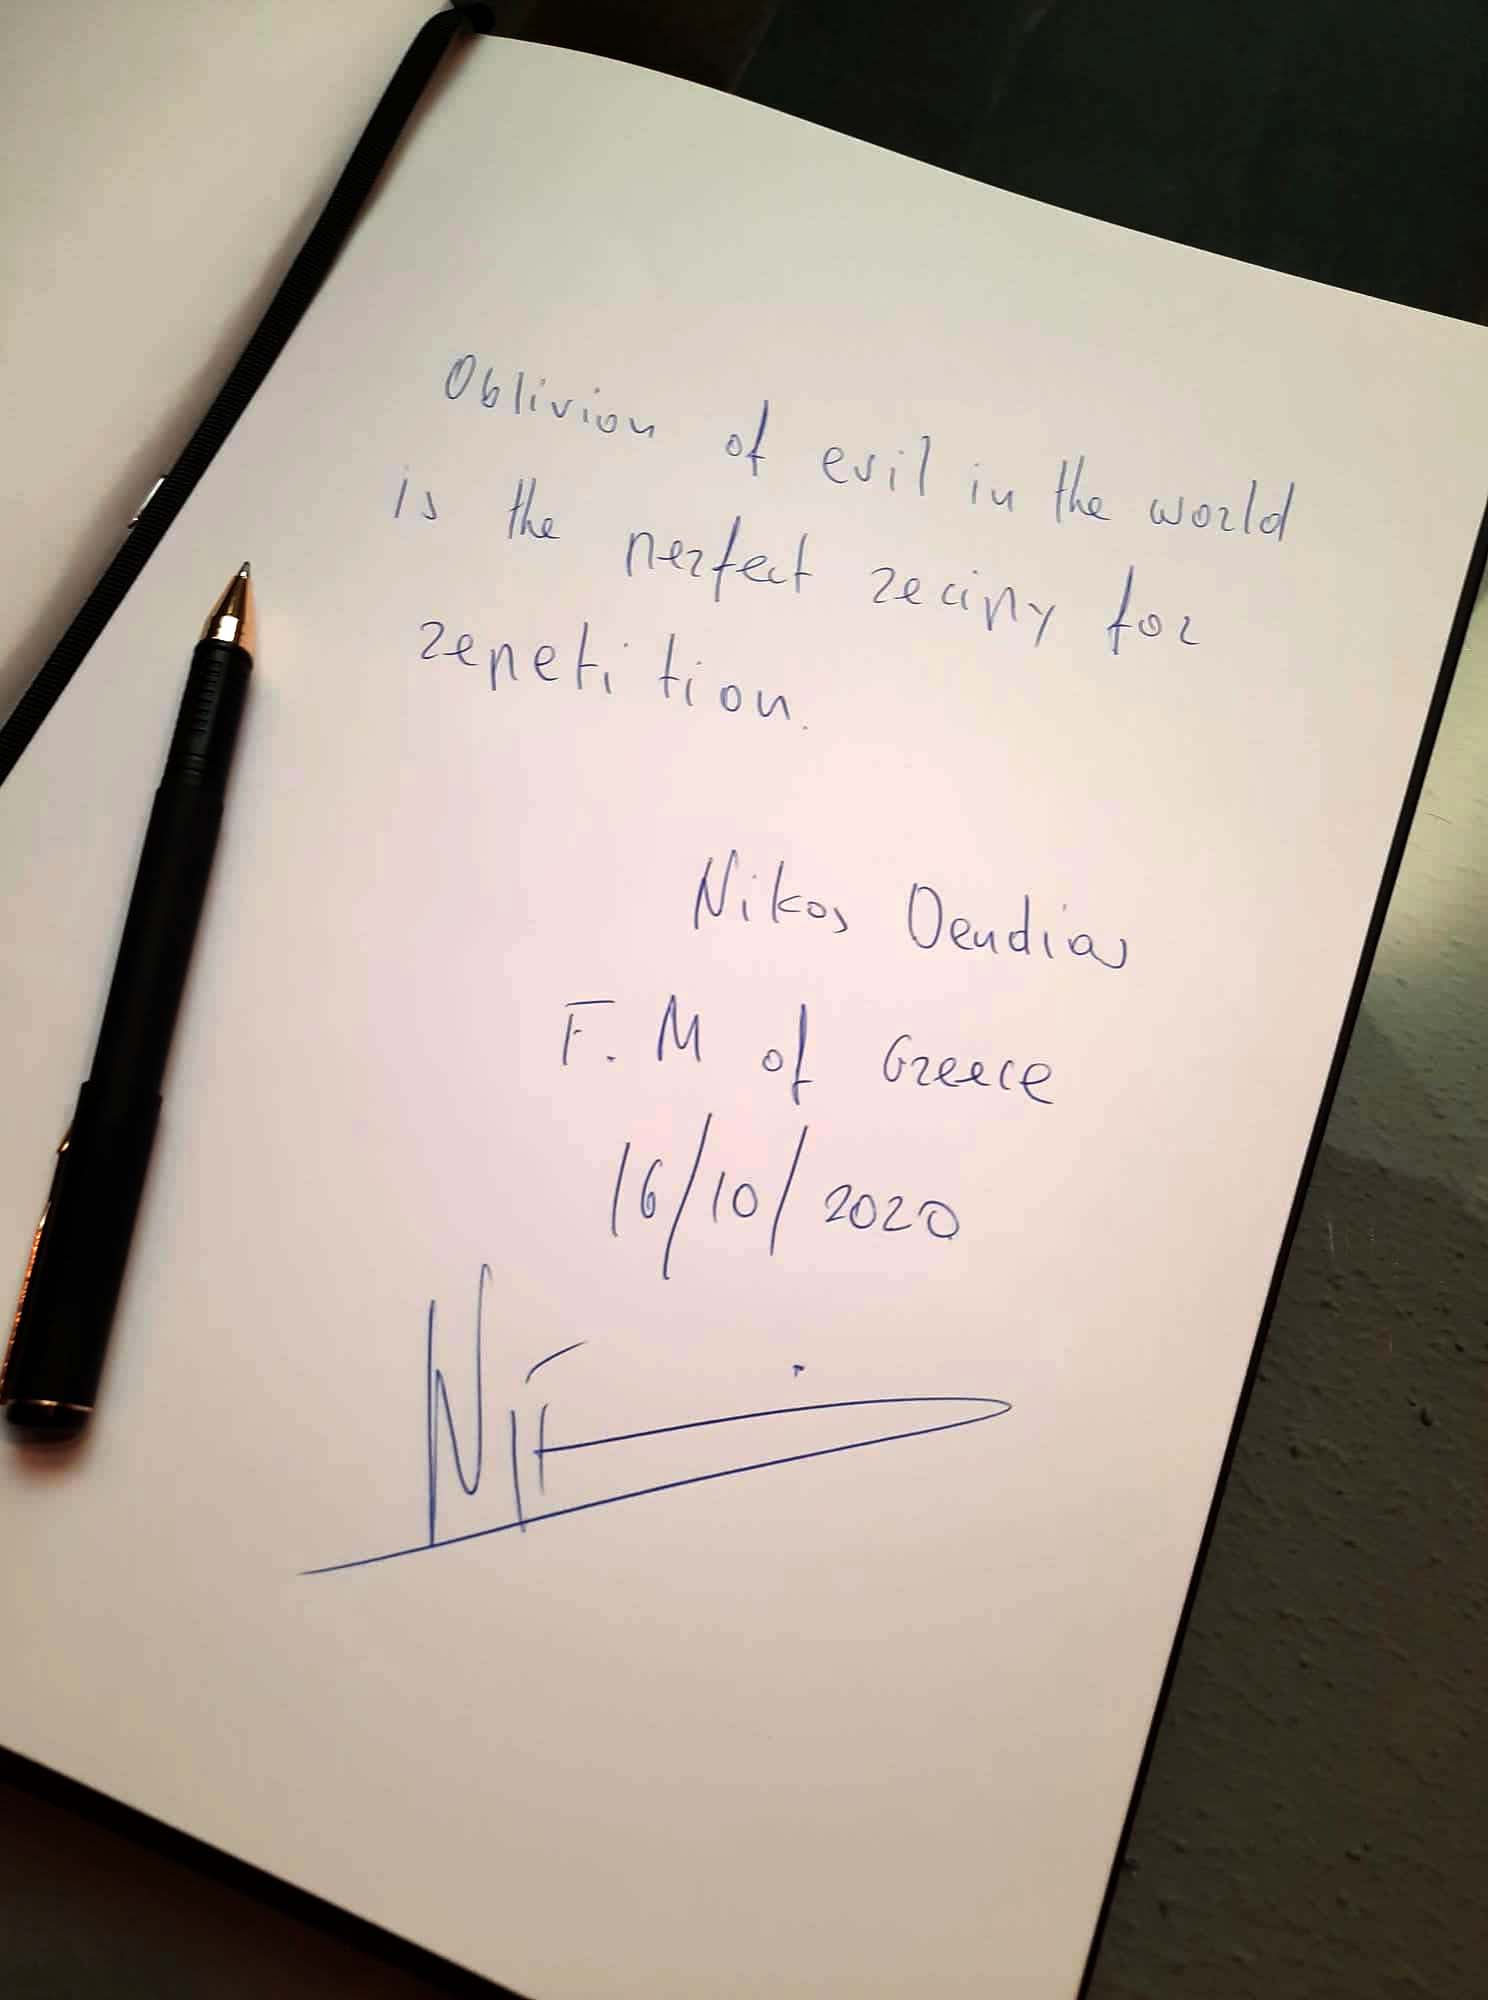 Oblivion of evil in the world
is the perfect recipy for
repetition.
Nikos Dendias
F. M of Greece
16/10/2020